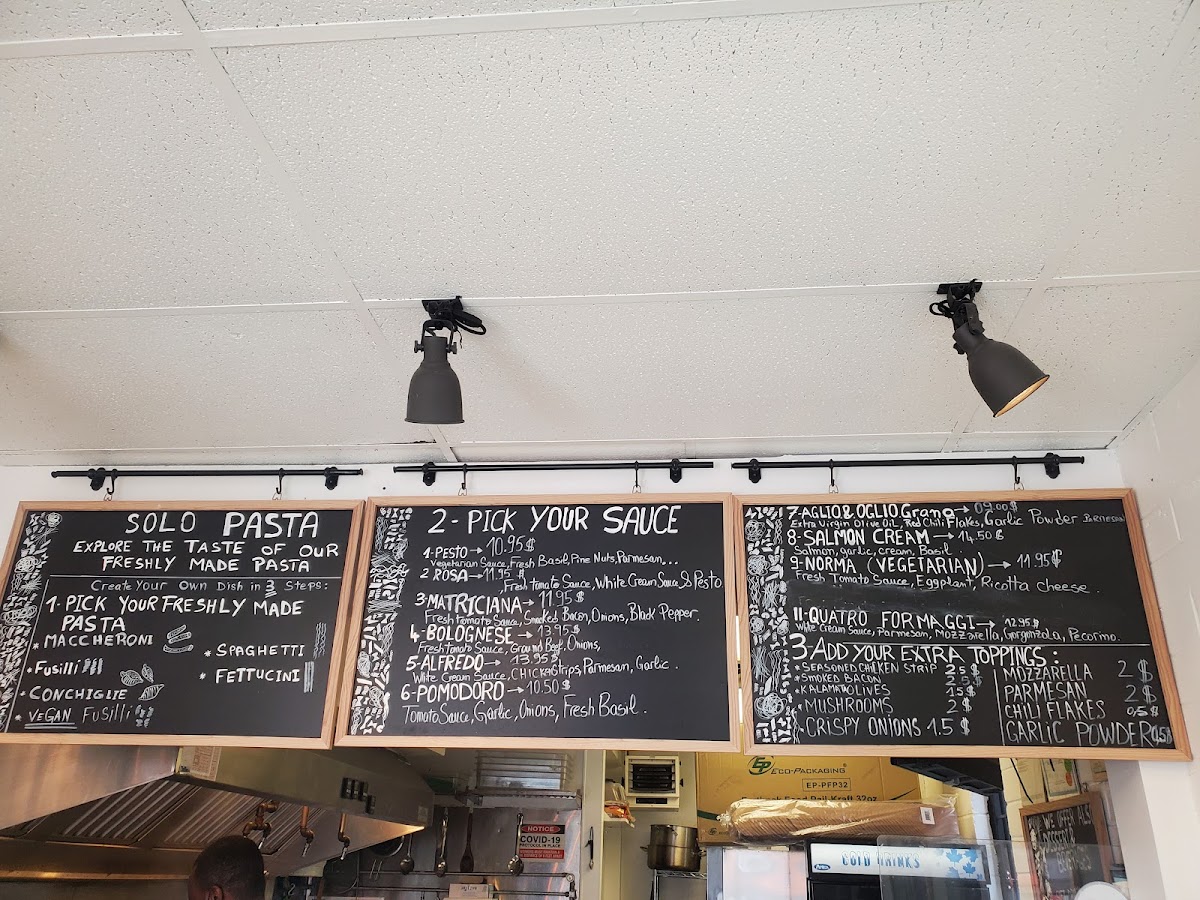 SOLO PASTA
EXPLORE THE TASTE OF OUR
FRESHLY MADE PASTA
Create Your Own Dish in 3 Steps:
1- PICK YOUR FRESHLY MADE
PASTA
* MACCHERONI
* Fusilli
* CONCHIGLIE
* VEGAN Fusilli
* SPAGHETTI
* FETTUCINI
2- PICK YOUR SAUCE
1- PESTO → 10.95$
Vegetarian Sauce, Fresh Basil, Pine Nuts, Parmesan,...
2 ROSA → 11.95 $
, Fresh Tomato Sauce, White Cream Sauce & Pesto
3- MATRICIANA → 11.95$
Fresh Tomato Sauce, Smoked Bacon, Onions, Black Pepper.
4- BOLOGNESE → 13.95$
Fresh Tomato Sauce, Ground Beef, Onions,
5- ALFREDO → 13.95$
White Cream Sauce, CHICKEN Strips, Parmesan, Garlic.
6- POMODORO → 10.50 $
Tomato Sauce, Garlic, Onions, Fresh Basil.
7- AGLIO & OGLIO Grano → 09.00$
Extra Virgin Olive Oil, Red Chili Flakes, Garlic Powder PARMESAN
8- SALMON CREAM → 14.50 $
Salmon, garlic, cream, Basil.
9- NORMA (VEGETARIAN) → 11.95$
Fresh Tomato Sauce, Eggplant, Ricotta cheese.
11- QUATRO FORMAGGI → 12.95$
White Cream Sauce, Parmesan, Mozzarella, Gorgonzola, Pecorino.
3- ADD YOUR EXTRA TOPPINGS:
* SEASONED CHICKEN STRIP 2.5 $
* SMOKED BACON
* KALAMATA OLIVES 1.5 $
* MUSHROOMS 2 $
* CRISPY ONIONS 1.5 $
MOZZARELLA 2 $
PARMESAN 2 $
CHILI FLAKES 0,5 $
GARLIC POWDER 0,5$
EP ECO-PACKAGING
EP-PFP32
Kraft 32oz
NOTICE
COVID-19
PROTOCOL IN PLACE
COLD DRINKS
WE OFFER ALS